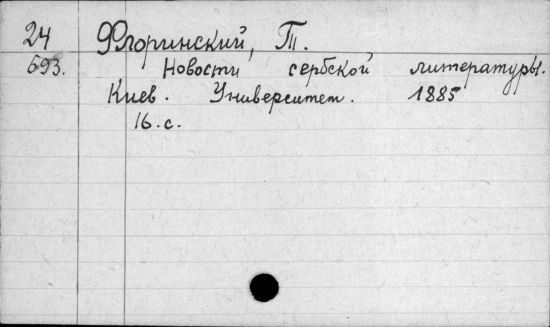 24 Флоринский, Т.
693. Новости сербской литературы.
Киев. Университет. 1885
16. с.